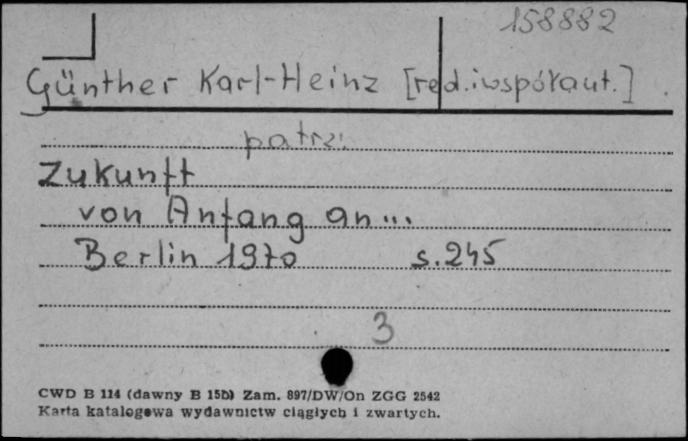 158882
Günther Karl-Heinz [red.iwspółaut.]
patrz:
Zukunft
von Anfang an...
Berlin 1970 s.245
3
CWD B 114 (dawny B 15b) Zam. 897/DW/On ZGG 2542
Karta katalogowa wydawnictw ciągłych i zwartych.